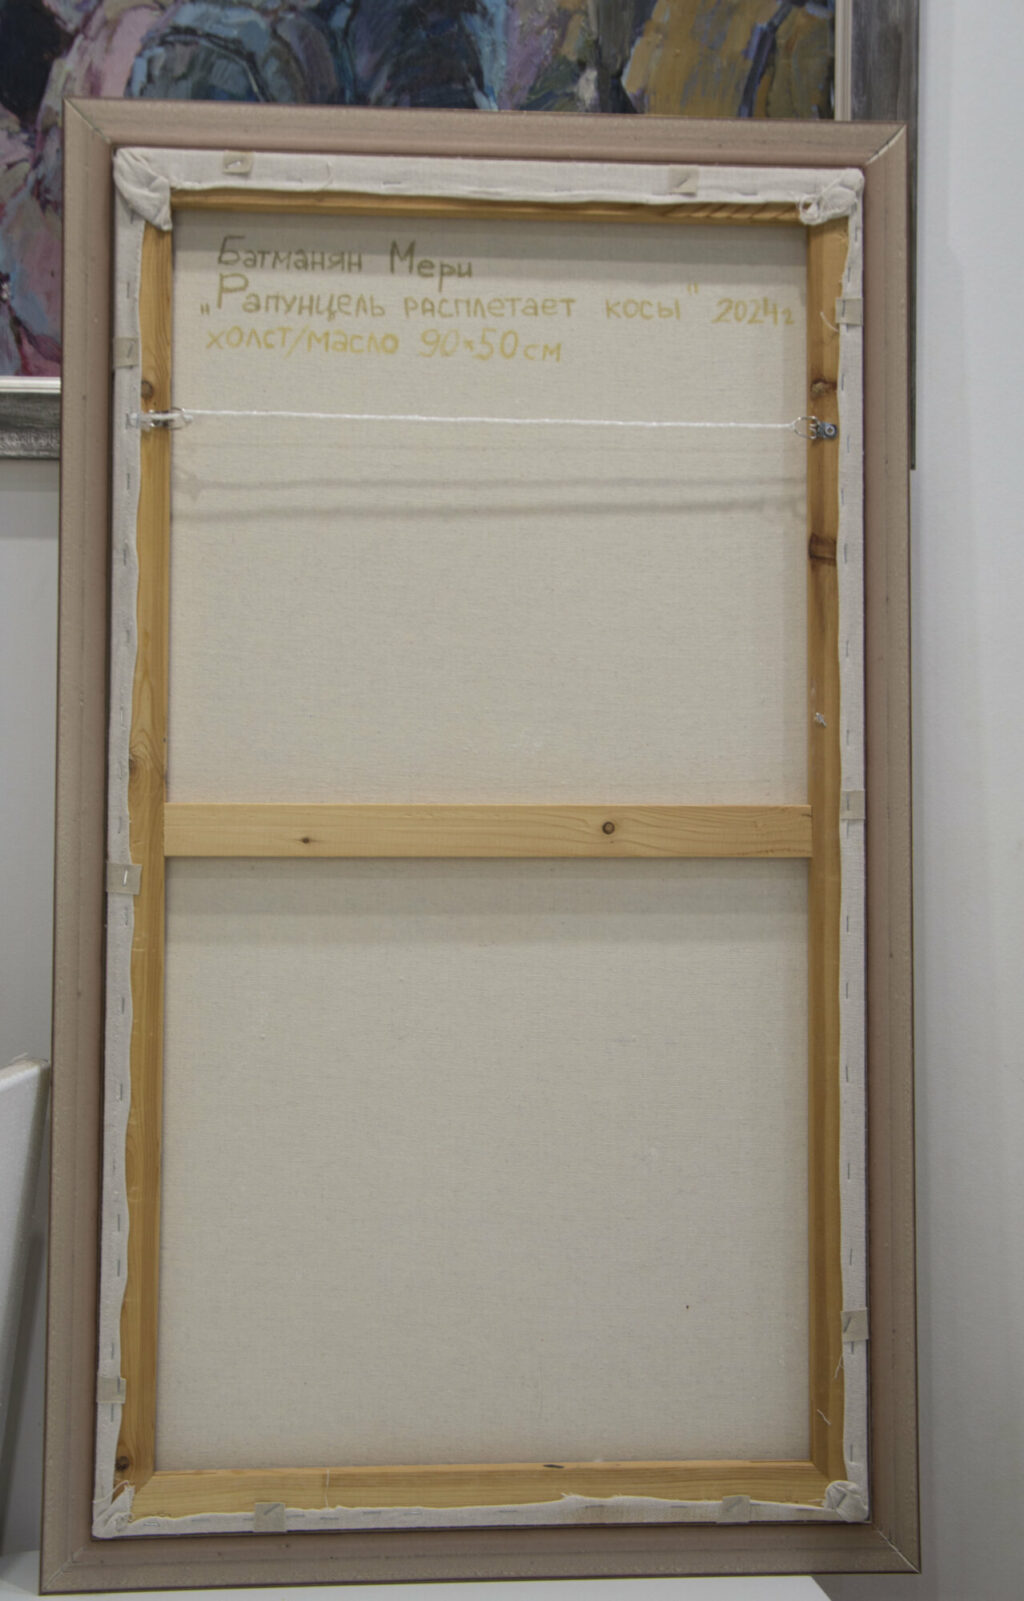 Батманян Мери
„Рапунцель расплетает косы" 2024г
холст/масло 90×50см